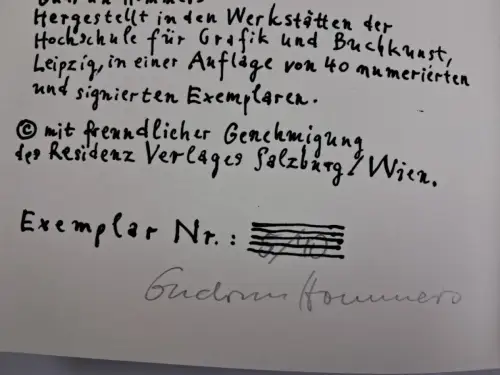 Hergestellt in den Werkstätten der
Hochschule für Grafik und Buchkunst,
Leipzig, in einer Auflage von 40 numerierten
und signierten Exemplaren.
© mit freundlicher Genehmigung
des Residenz Verlages Salzburg/Wien.
Exemplar Nr.:
Gudrun Hommers